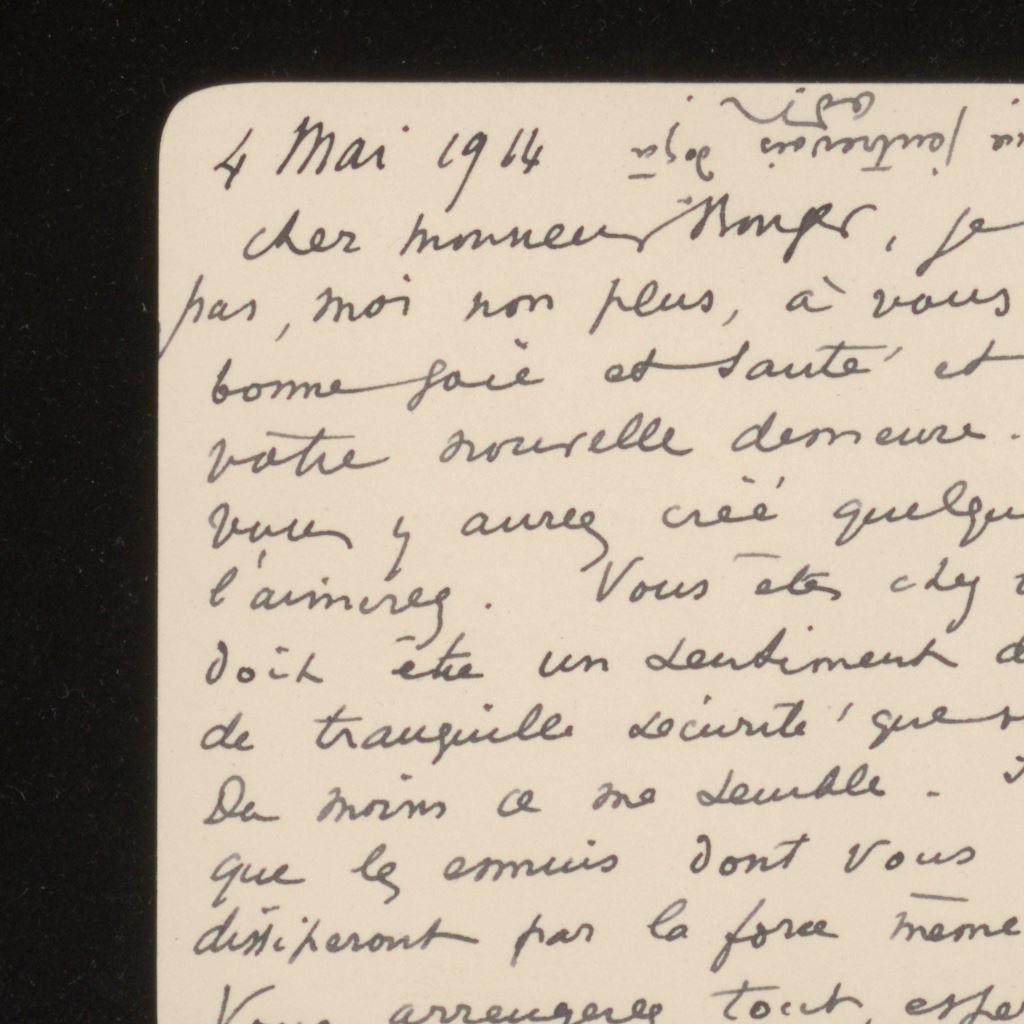 4 Mai 1914
cher monsieur Rouger, je
pas, moi non plus, à vous
bonne joie et santé et
votre nouvelle demeure.
vous y aurez créé quelqu
l'aimerez. Vous êtes chez
doit être un sentiment d
de tranquille sécurité que
Du moins ce me semble.
que les ennuis dont vous
dissiperont par la force même
Vous arrangerez tout, esper
j'entrevois déjà